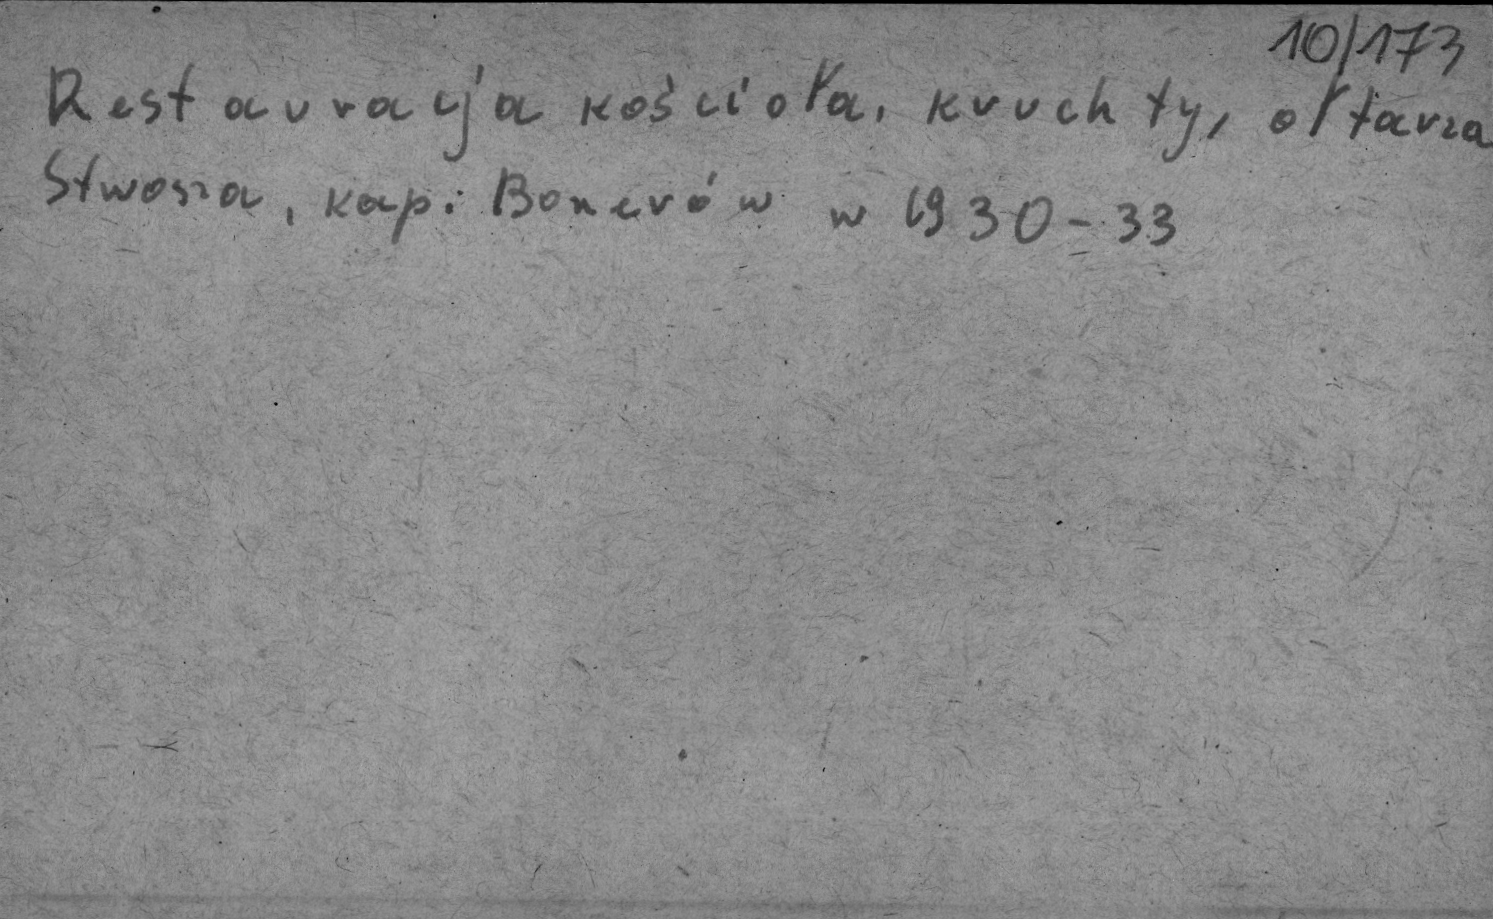 10/173
Restauracja kościoła, kruchty, ołtarza
Stwosza, kap. Bonerów w 1930-33